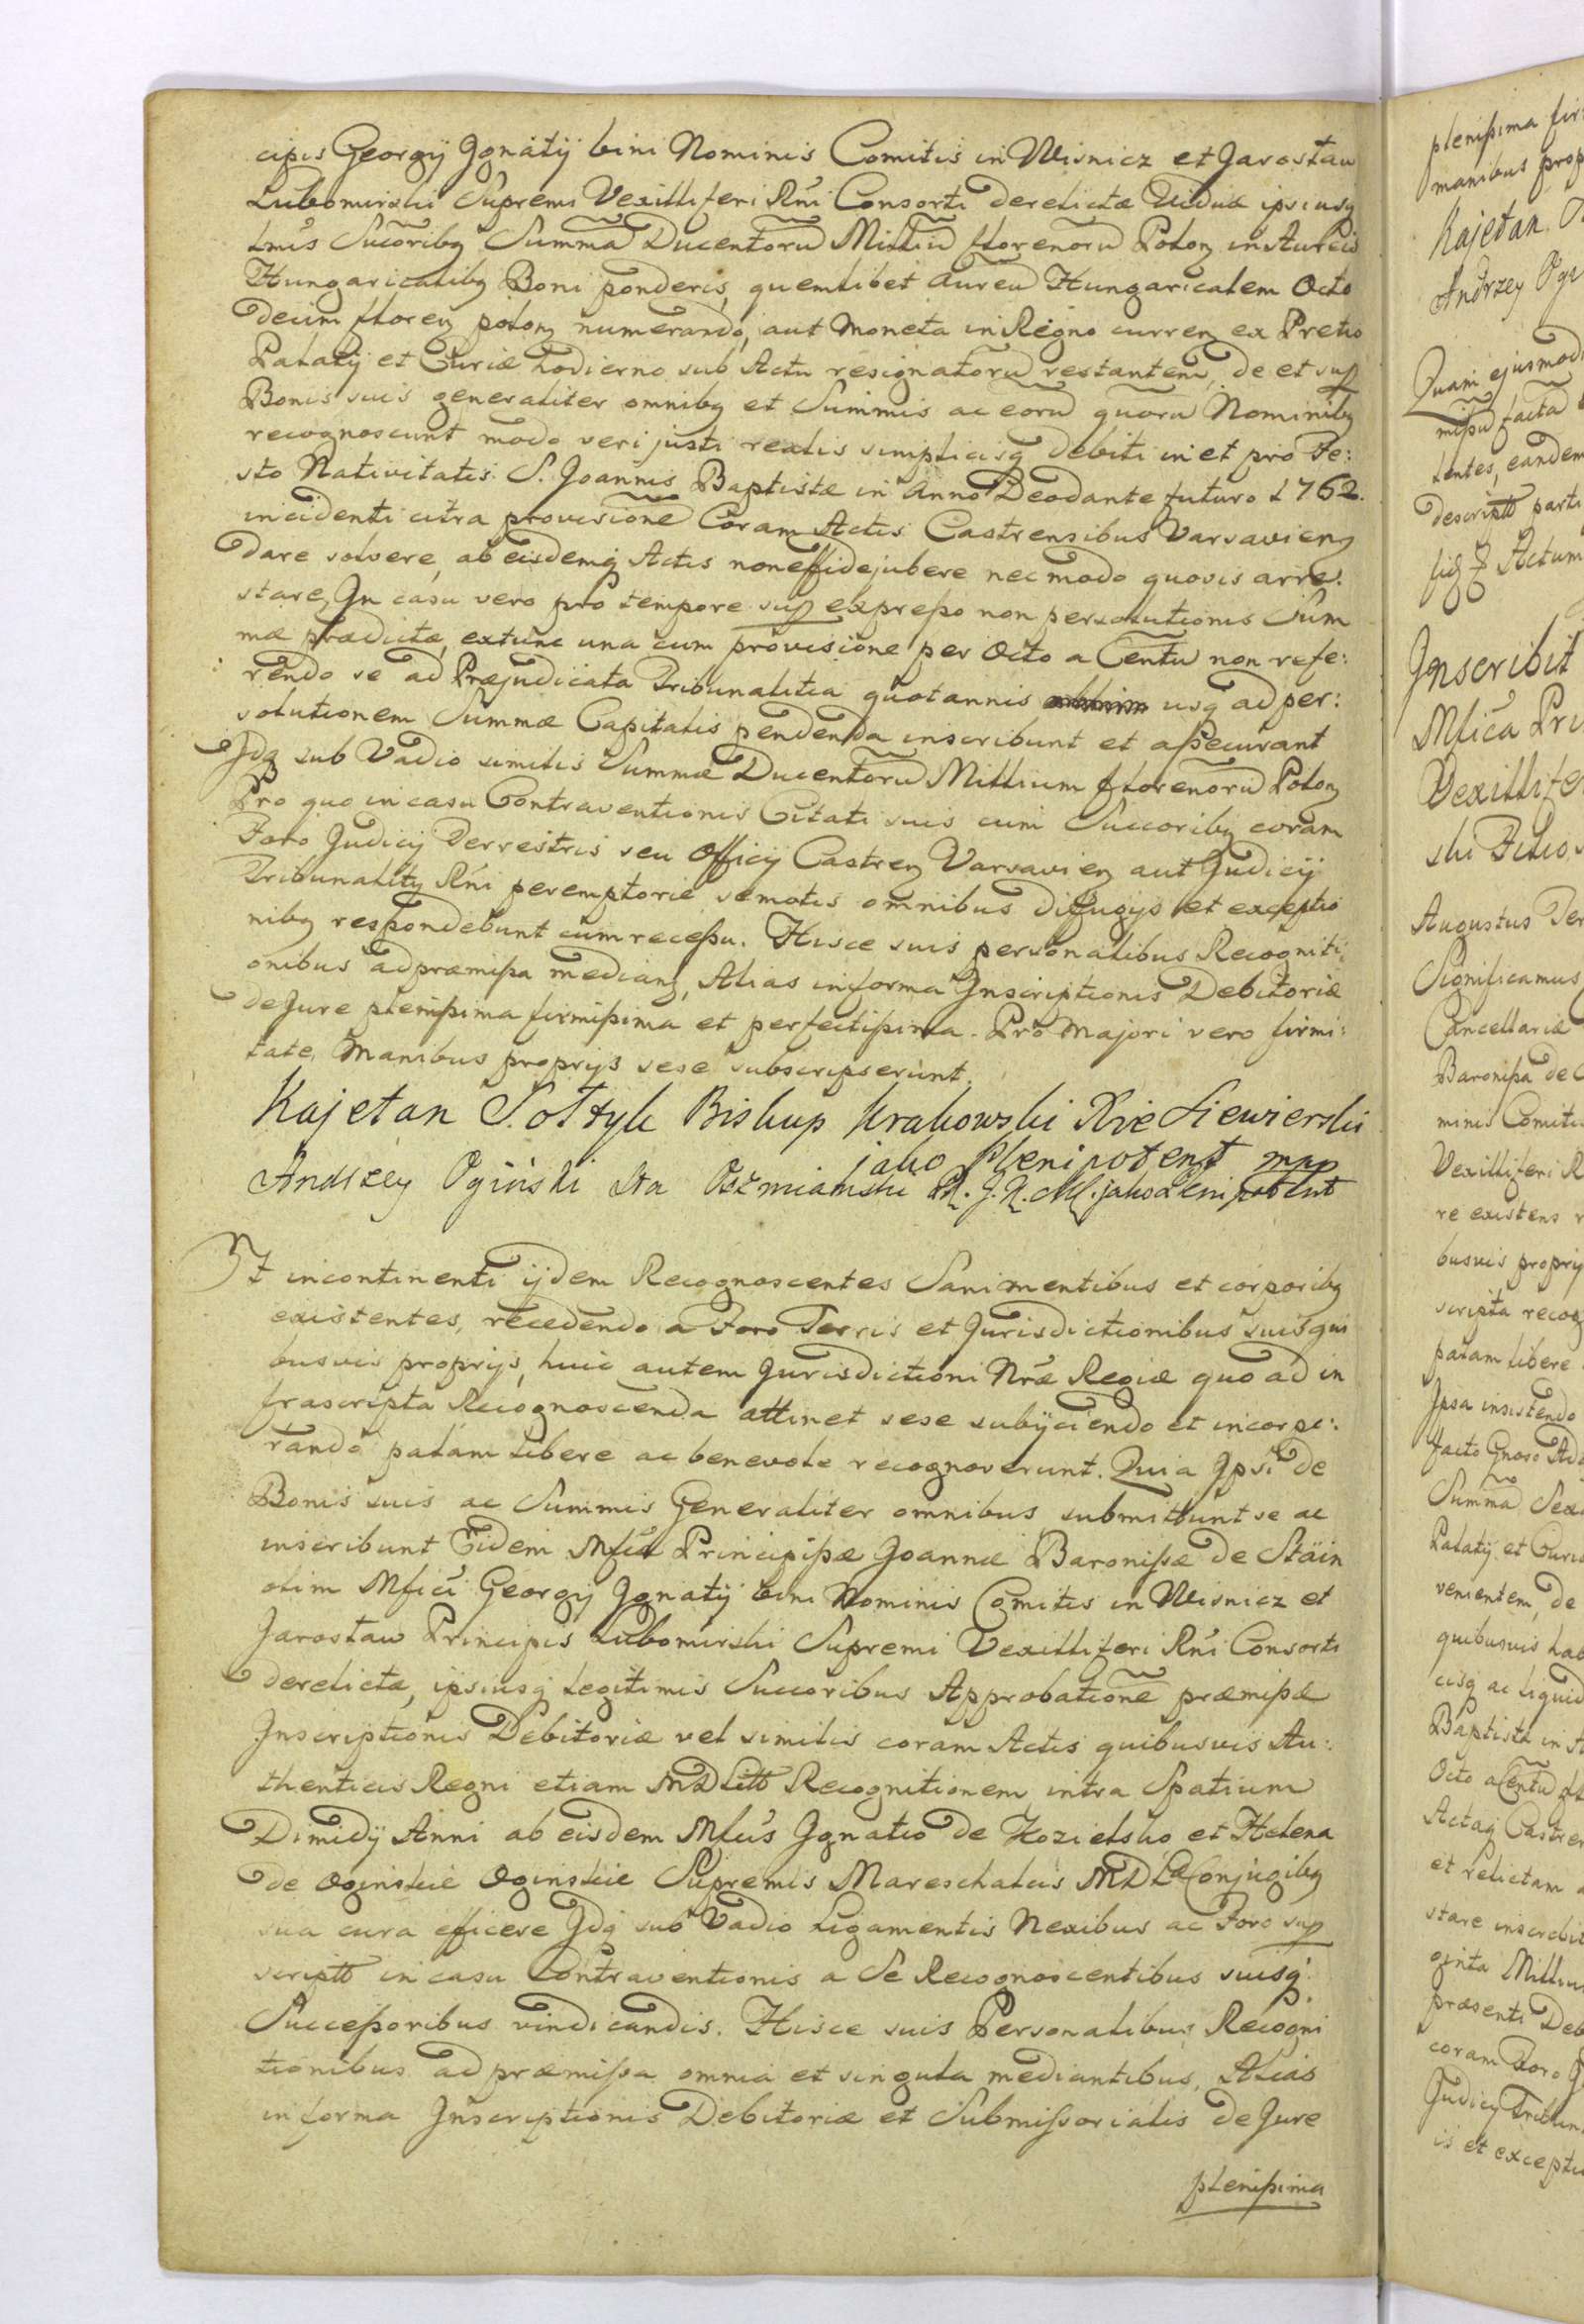 cipis Georgij Ignatij bini Nominis Comitis in Wisnicz et Jarosław
Lubomirski Supremi Vexilliferi Rñi Consorti derelictæ Viduæ ipsiusq
Lmis Sucõribq Summã Ducentorũ Milliũ florenorũ Polonq in Aureis
Hungaricalibq Boni ponderis, quemlibet aureũ Hungaricalem Octo
decim florenq polonq numerando, aut Moneta in Regno currenq ex Pretio
Palatij et Curiæ hodierno sub Actu resignatorũ restantem, de et sup
Bonis suis generaliter omnibq et Summis ac eorũ quorũ Nominibq
recognoscunt modo veri justi realis simplicisq debiti in et pro Fe:
sto Nativitatis S. Joannis Baptistæ in Anno Deo dante futuro 1762.
incidenti citra provisionẽ Coram Actis Castrensibus Varsavienq
dare solvere, ab eisdemq Actis non effidejubere nec modo quovis arre:
stare, In casu vero pro tempore sup expresso non persolutionis Sum
mæ prædictæ, extunc una cum provisione per Octo a Centũ non refe:
rendo se ad Præjudicata Tribunalitia quotannis usq ad per:
solutionem Summæ Capitalis pendenda inscribunt et assecurant
Idq sub Vadio similis Summæ Ducentorũ Millium florenorũ Polonq
Pro quo in casu Contraventionis Citati suis cum Succoribq coram
Foro Judicij Terrestris seu Officij Castrenq Varsavienq aut Judicij
Tribunalitij Rñi peremptorie semotis omnibus diffugijs et exceptio
nibq respondebunt cum recessu. Hisce suis personalibus Recogniti:
onibus ad præmissa medianq, Alias in forma Inscriptionis Debitoriæ
de Jure plenissima firmissima et perfectissima. Pro Majori vero firmi:
tate, Manibus proprijs sese subscripserunt.
Kajetan Sołtyk Biskup Krakowski Xże Siewierski
jako Plenipotent mpp
Andrzey Ogiński Sta Oszmiański P. J. K. M. jako Plenipotent
Et incontinenti ijdem Recognoscentes Sani mentibus et corporibq
existentes, recedendo a Foro Terris et Jurisdictionibus suis qui
busvis proprijs, huic autem Jurisdictioni Nræ Regiæ quo ad in
frascripta Recognoscenda attinet sese subijciendo et incorpo:
rando palam libere ac benevole recognoverunt. Quia Ipsi de
Bonis suis ac Summis Generaliter omnibus submittunt se ac
inscribunt Eidem Mficæ Principissæ Joannæ Baronissæ de Stäin
olim Mfici Georgij Ignatij bini Nominis Comitis in Wisnicz et
Jarosław Principis Lubomirski Supremi Vexilliferi Rñi Consorti
derelictæ, ipsiusq legitimis Succoribus Approbationẽ præmissæ
Inscriptionis Debitoriæ vel similis coram Actis quibusvis Au:
thenticis Regni etiam MDLitt Recognitionem intra Spatium
Dimidij Anni ab eisdem Mficis Ignatio de Kozielsko et Helena
de Oginskie Oginskie Supremis Mareschalcis MDL Conjugibq
sua cura efficere Idq sub Vadio Ligamentis Nexibus ac Foro sup
scriptt in casu Contraventionis a Se Recognoscentibus suisq
Successoribus vindicandis. Hisce suis Personalibus Recogni
tionibus ad præmissa omnia et singula mediantibus, Alias
in forma Inscriptionis Debitoriæ et Submissorialis de Jure
plenissima
plenissima fir
manibus prop
Kajetan
Andrzey Ogi
Quam ejusmod
facta
lentes, eandem
descriptt parti
Actum
Inscribit
Mfica Pri
Vexillife
ski Filio
Augustus
Significamus
Cancellariæ
Baronissa de
minis Comitis
Vexilliferi R
re existens
busvis proprij
scripta recog
palam libere
Ipsa insistendo
facto Gnoso Ad
Summã Sex
Palatij et Curi
venientem, de
quibusvis hab
cisq ac liquid
Baptistæ in
Octo a Centũ
Actaq Castre
et relictam
stare inscribit
ginta Milliu
præsenti Deb
coram Foro J
Judicij Tribun
is et exceptio